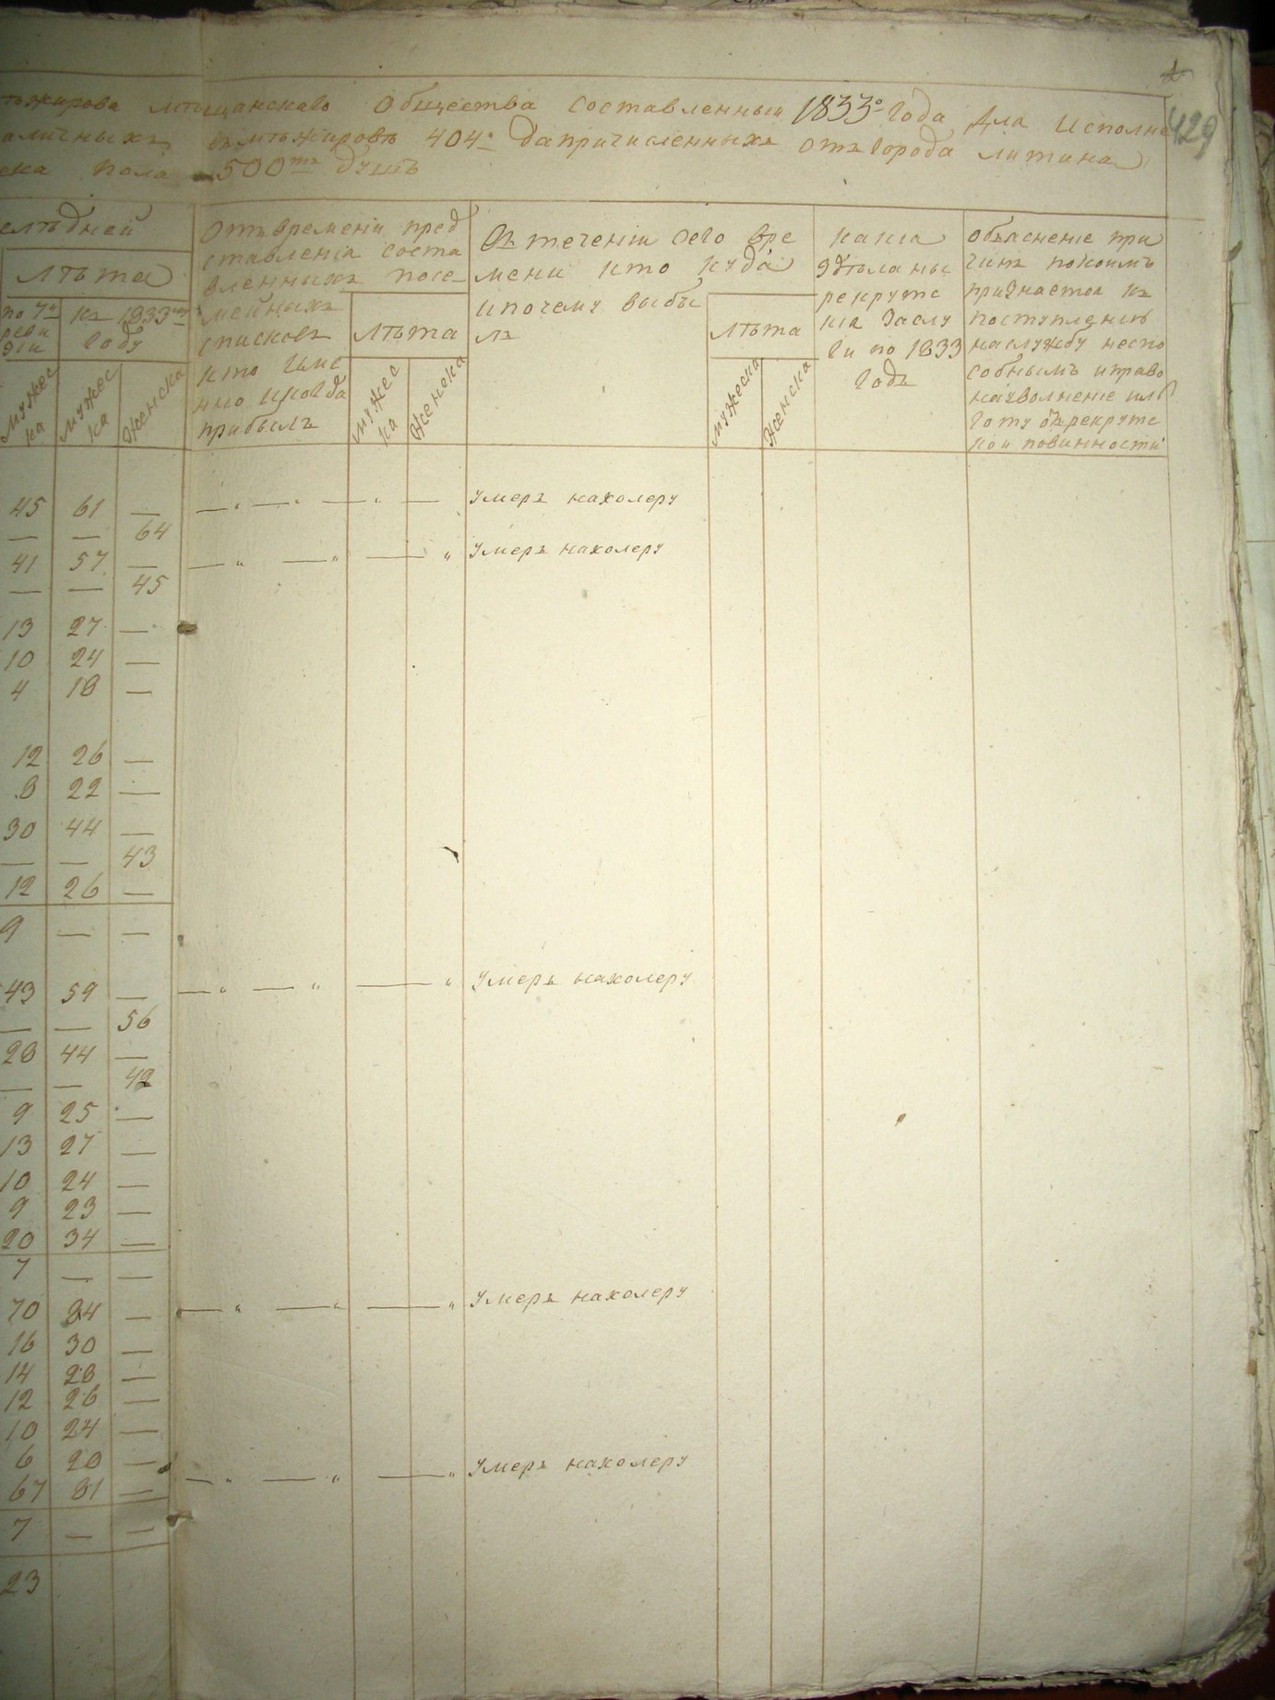 тъжирова мѣщанскаго Общества составленный 1833го Года Для Исполне
аличныхъ въ мѣжировѣ 404. да причисленныхъ отъ города литина
ска Пола 500тъ душъ
429
Лѣта
по 7й реви зіи
къ 1833му Году
мужес ка
мужес ка
женска
Отъ времени пред
ставленія соста
вленныхъ посе
мейныхъ
списковъ
кто имс
нно и когда
прибылъ
Лѣта
мужес ка
женска
Въ теченіи сего вре
мени кто куда
и почему выбы
лъ
Лѣта
мужеска
женска
какіа
здѣланы
рекрутс
кіа Заслу
Ги по 1833
Годъ
Объасненіе при
чинъ по коимъ
признается къ
поступленію
на службу неспо
собнымъ и право
на уволненіе ил
Готу въ рекрутс
кой повинности
45 61 — Умеръ нахолеру
— — 64
41 57 — Умеръ нахолеру
— — 45
13 27 —
10 24 —
4 18 —
12 26 —
8 22 —
30 44 —
— — 43
12 26 —
9 — —
43 59 — Умеръ нахолеру
— — 56
28 44 —
— — 42
9 25 —
13 27 —
10 24 —
9 23 —
20 34 —
7 — —
70 84 — Умеръ нахолеру
16 30 —
14 28 —
12 26 —
10 24 —
6 20 —
67 81 — Умеръ нахолеру
7 — —
23